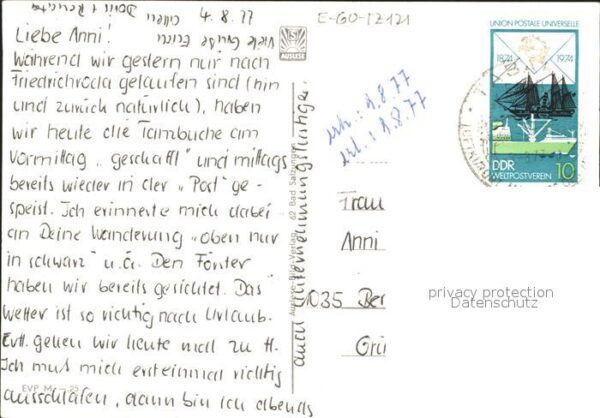 4.8.77
Liebe Anni!
Während wir gestern nur nach
Friedrichroda gelaufen sind (hin
und zurück natürlich), haben
wir heute die Tambuche am
Vormittag „geschafft" und mittags
bereits wieder in der „Post" ge-
speist. Ich erinnerte mich dabei
an Deine Wanderung „oben nur
in schwarz" u.ä. Den Förster
haben wir bereits gesichtet. Das
Wetter ist so richtig nach Urlaub.
Evtl. gehen wir heute mal zu H.
Ich muß mich ersteinmal richtig
ausschlafen, dann bin ich abends
auch unternehmungslustiger.
Viele Grüße
Doris + Renate
EVP M -,25
AUSLESE
Auslese-Bild-Verlag, 62 Bad Salzungen
E-GO-IZ121
erh.: 8.8.77
erl.: 8.8.77
UNION POSTALE UNIVERSELLE
1874 1974
DDR
WELTPOSTVEREIN 10
Frau
Anni
1035 Ber
Grü
privacy protection
Datenschutz